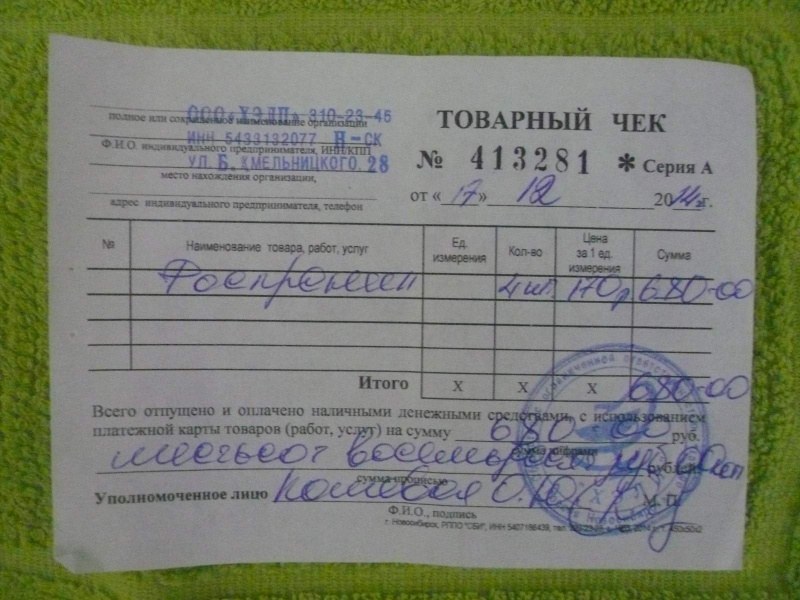 ООО «ХЭЛП» 310-23-46
полное или сокращенное наименование организации
ИНН 5433132077 Н-СК
Ф.И.О. индивидуального предпринимателя, ИНН/КПП
УЛ. Б. ХМЕЛЬНИЦКОГО, 28
место нахождения организации,
адрес индивидуального предпринимателя, телефон
ТОВАРНЫЙ ЧЕК
№ 413281 * Серия А
от «17» 12 2014 г.
№ Наименование товара, работ, услуг Ед. измерения Кол-во Цена за 1 ед. измерения Сумма
4 шт. 170 р 680-00
Итого х х х 680-00
Всего отпущено и оплачено наличными денежными средствами, с использованием
платежной карты товаров (работ, услуг) на сумму 680 00 руб.
сумма цифрами
шестьсот восемьдесят руб 00 коп
сумма прописью
Уполномоченное лицо О.Ю. М.П.
Ф.И.О., подпись
г. Новосибирск, РППО "СБИ", ИНН 5407186439, тел.